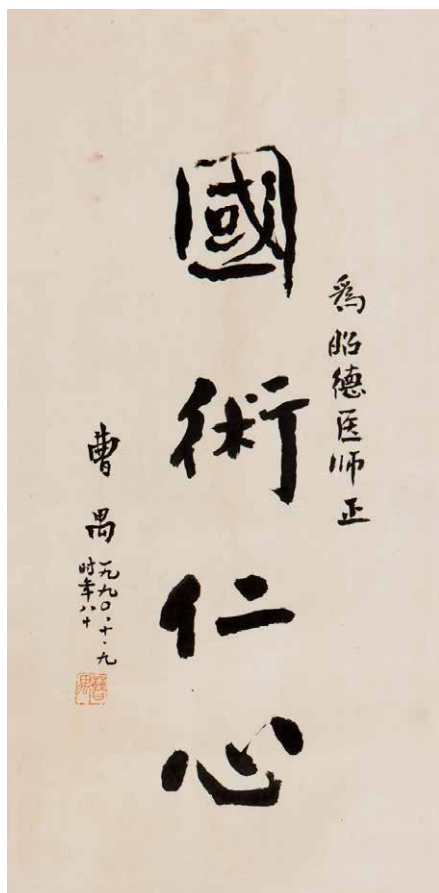 為昭德医师正
國術仁心
曹禺
一九九〇·十·九
时年八十
曹禺